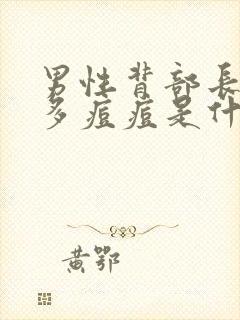 男性背部長
多痘痘是什
黄鄂